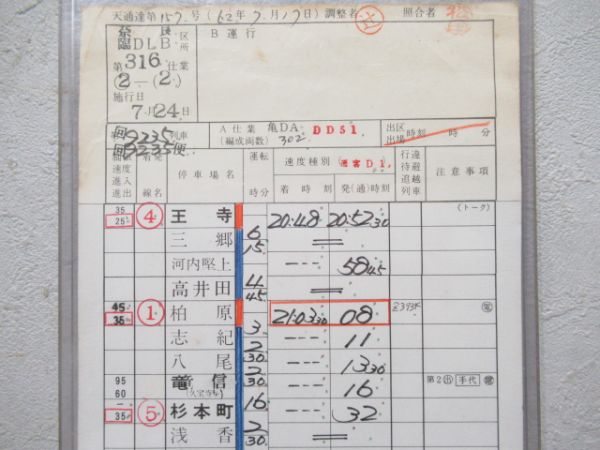 天通達第157号(62年7月17日)調整者 照合者
奈良区
臨DLB所
B運行
第316仕業
(2-(2)
施行日
7月24日
回9235列車
回9235便
A仕業 亀DA DD51
(編成両数) 302
出区
出場 時刻 時 分
制限
速度
進入
進出
着発
線名
停車場名
運転
時分
速度種別(通客D1)
着時刻 発(通)時刻
行違
待避
追越
列車
注意事項
35
25 ④ 王寺 20:48 20:52 30 (トーク)
三郷 6 15 =
河内堅上 --- 58 45
高井田 4 45 =
45
35 ① 柏原 21:03 30 08
志紀 3 --- 11
八尾 2 30 --- 13 30
95
60 竜信 (久宝寺駅) 2 30 --- 16 第2 手代
35 ⑤ 杉本町 16 --- 32
浅香 2 30 =